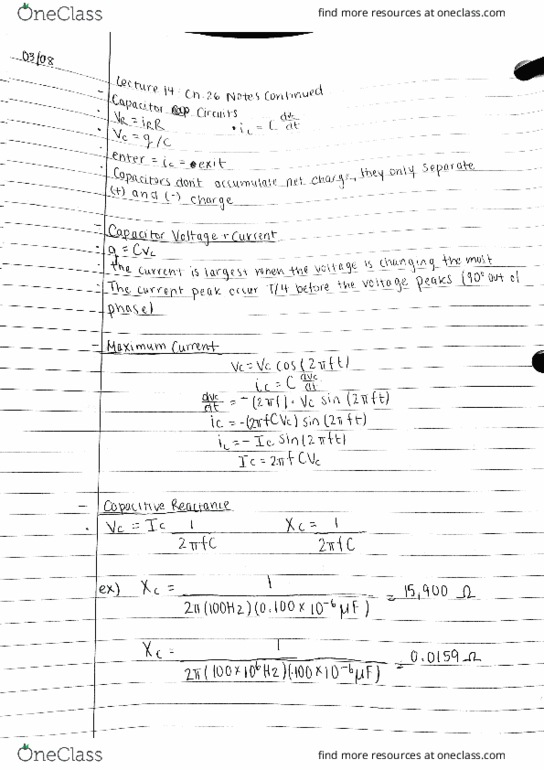 OneClass
find more resources at oneclass.com
03/08
- Lecture 14: Ch.26 Notes Continued
- Capacitor Circuits
• VR = iRR • ic = C dvc/dt
• Vc = q/C
enter = ic = exit
Capacitors don't accumulate net charge, they only separate
(+) and (-) charge
- Capacitor Voltage + Current
• q = CVc
- The current is largest when the voltage is changing the most
- The current peak occur T/4 before the voltage peaks (90° out of
phase)
- Maximum Current
Vc = Vc cos (2πft)
ic = C dvc/dt
dvc/dt = -(2πf) · Vc sin (2πft)
ic = -(2πfCVc) sin (2πft)
ic = - Ic sin (2πft)
Ic = 2πf CVc
- Capacitive Reactance
• Vc = Ic 1/2πfC Xc = 1/2πfC
ex) Xc = 1/2π(100Hz)(0.100 x 10⁻⁶ μF) = 15,900 Ω
Xc = 1/2π(100x10⁶Hz)(.100 x 10⁻⁶ μF) = 0.0159 Ω
OneClass
find more resources at oneclass.com